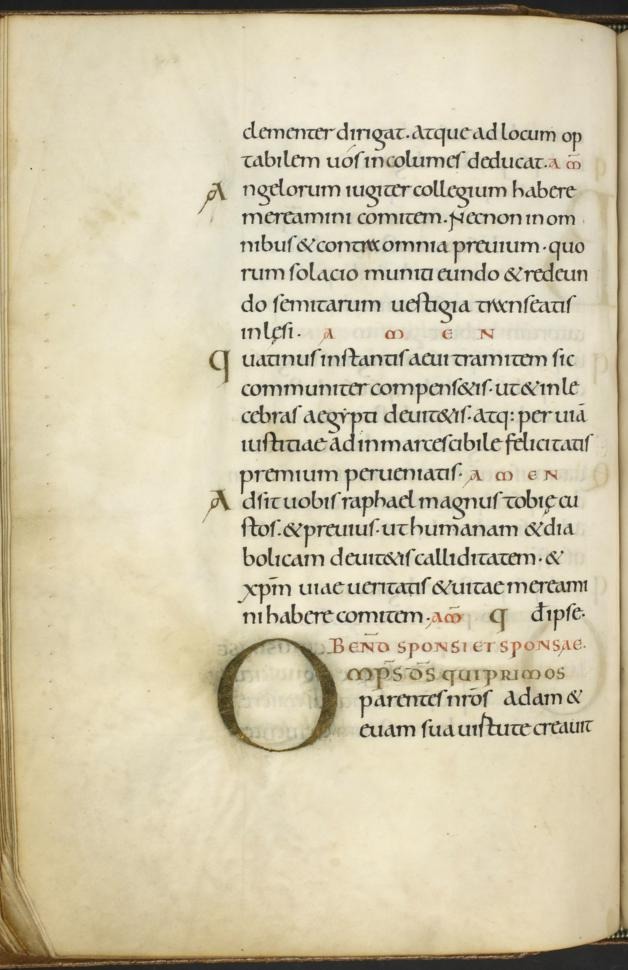 clementer dirigat. atque ad locum op
tabilem uos incolumes deducat. am̄
Angelorum iugiter collegium habere
mereamini comitem. Necnon in om
nibus & contra omnia preuium. quo
rum solacio muniti eundo & redeun
do semitarum uestigia transeatis
inlęsi. A M E N
quatinus instantis aeui tramitem sic
communiter compens&is. ut & inle
cebras aegýpti deuit&is. atq: per uiā
iustitiae ad inmarcescibile felicitatis
premium perueniatis. A M E N
Adsit uobis raphael magnus tobię cu
stos. & preuius. ut humanam & dia
bolicam deuit&is calliditatem. &
xpm̄ uiae ueritatis & uitae mereami
ni habere comitem. am̄ q đ ipse.
BEND̄ SPONSI ET SPONSAE.
OMP̄S D̄S QUI PRIMOS
parentes nr̄os adam &
euam sua uirtute creauit